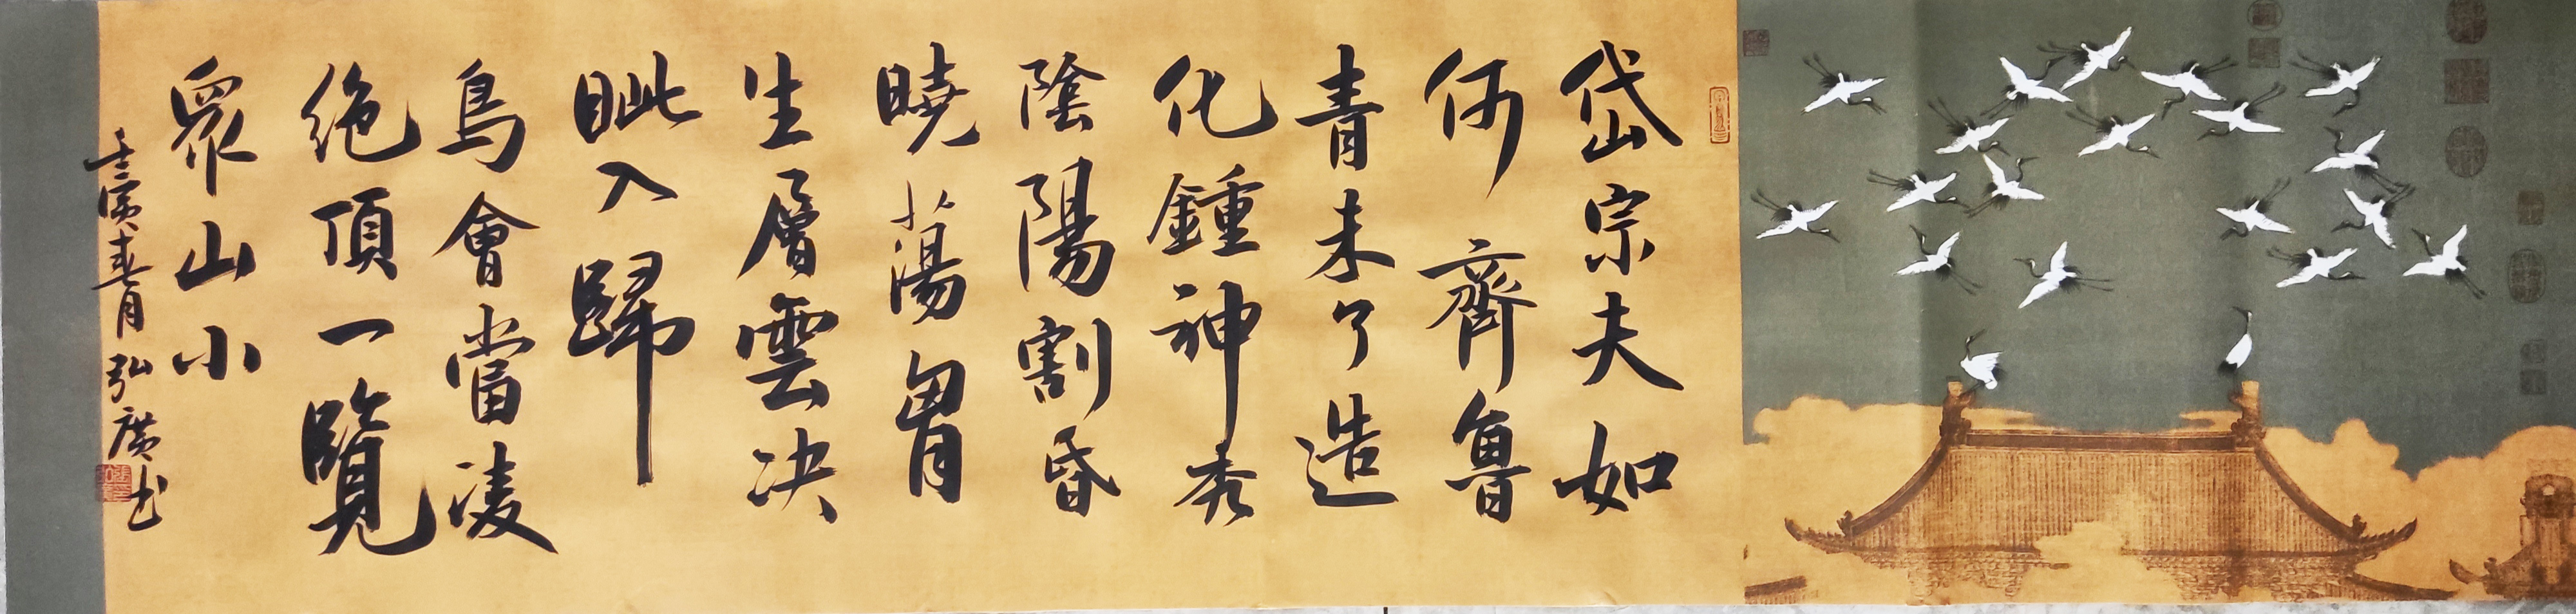 岱宗夫如
何齊魯
青未了造
化鍾神秀
陰陽割昏
曉蕩胷
生層雲决
眦入歸
鳥會當凌
絶頂一覽
衆山小
壬寅春月弘廣书